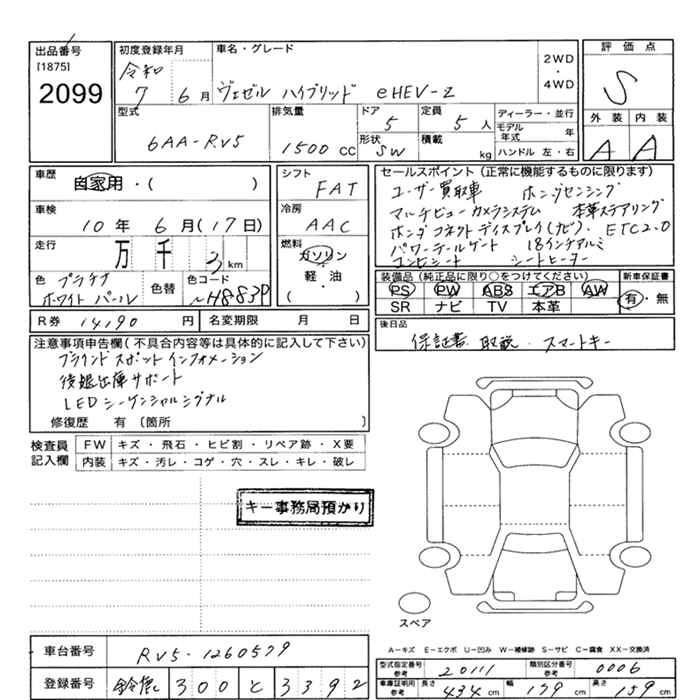 出品番号
[1875]
2099
初度登録年月
令和
7 6月
車名・グレード
ヴェゼル ハイブリッド eHEV-Z
2WD
・
4WD
評価点
S
型式
6AA-RV5
排気量
1500 CC
ドア
5
形状
SW
定員
5 人
積載
kg
ディーラー・並行
モデル年式 年
ハンドル 左・右
外装 内装
A A
車歴
自家用・( )
車検
10年 6月(17日)
走行
万 千 3 km
色
プラチナ
ホワイトパール
色替
色コード
NH883P
シフト
FAT
冷房
AAC
燃料
ガソリン
・
軽・油
・
( )
R券 14190 円
名変期限 月 日
セールスポイント(正常に機能するものに限ります)
ユーザー買取車 ホンダセンシング
マルチビューカメラシステム 本革ステアリング
ホンダコネクトディスプレイ(ナビ). ETC2.0
パワーテールゲート 18インチアルミ
コンビシート シートヒーター
装備品(純正品に限り○をつけてください)
PS PW ABS エアB AW
SR ナビ TV 本革
新車保証書
有・無
後日品
保証書. 取説. スマートキー
注意事項申告欄(不具合内容等は具体的に記入して下さい)
ブラインドスポットインフォメーション
後退出庫サポート
LEDシーケンシャルシグナル
修復歴 有 〔箇所 〕
検査員
記入欄
FW キズ・飛石・ヒビ割・リペア跡・X要
内装 キズ・汚レ・コゲ・穴・スレ・キレ・破レ
キー事務局預かり
スペア
A-キズ E-エクボ U-凹み W-補修跡 S-サビ C-腐食 XX-交換済
車台番号 RV5-1260579
登録番号 鈴鹿 300 と 3392
型式指定番号
参考
20111
類別区分番号
参考
0006
車庫証明用
参考
長さ 434 cm 幅 179 cm 高さ 159 cm